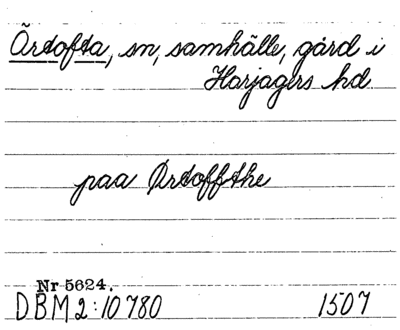 Örtofta, sn, samhälle, gård i
Harjagers hd.
paa Ørtoffthe
Nr 5624.
DBM 2:10780 1507